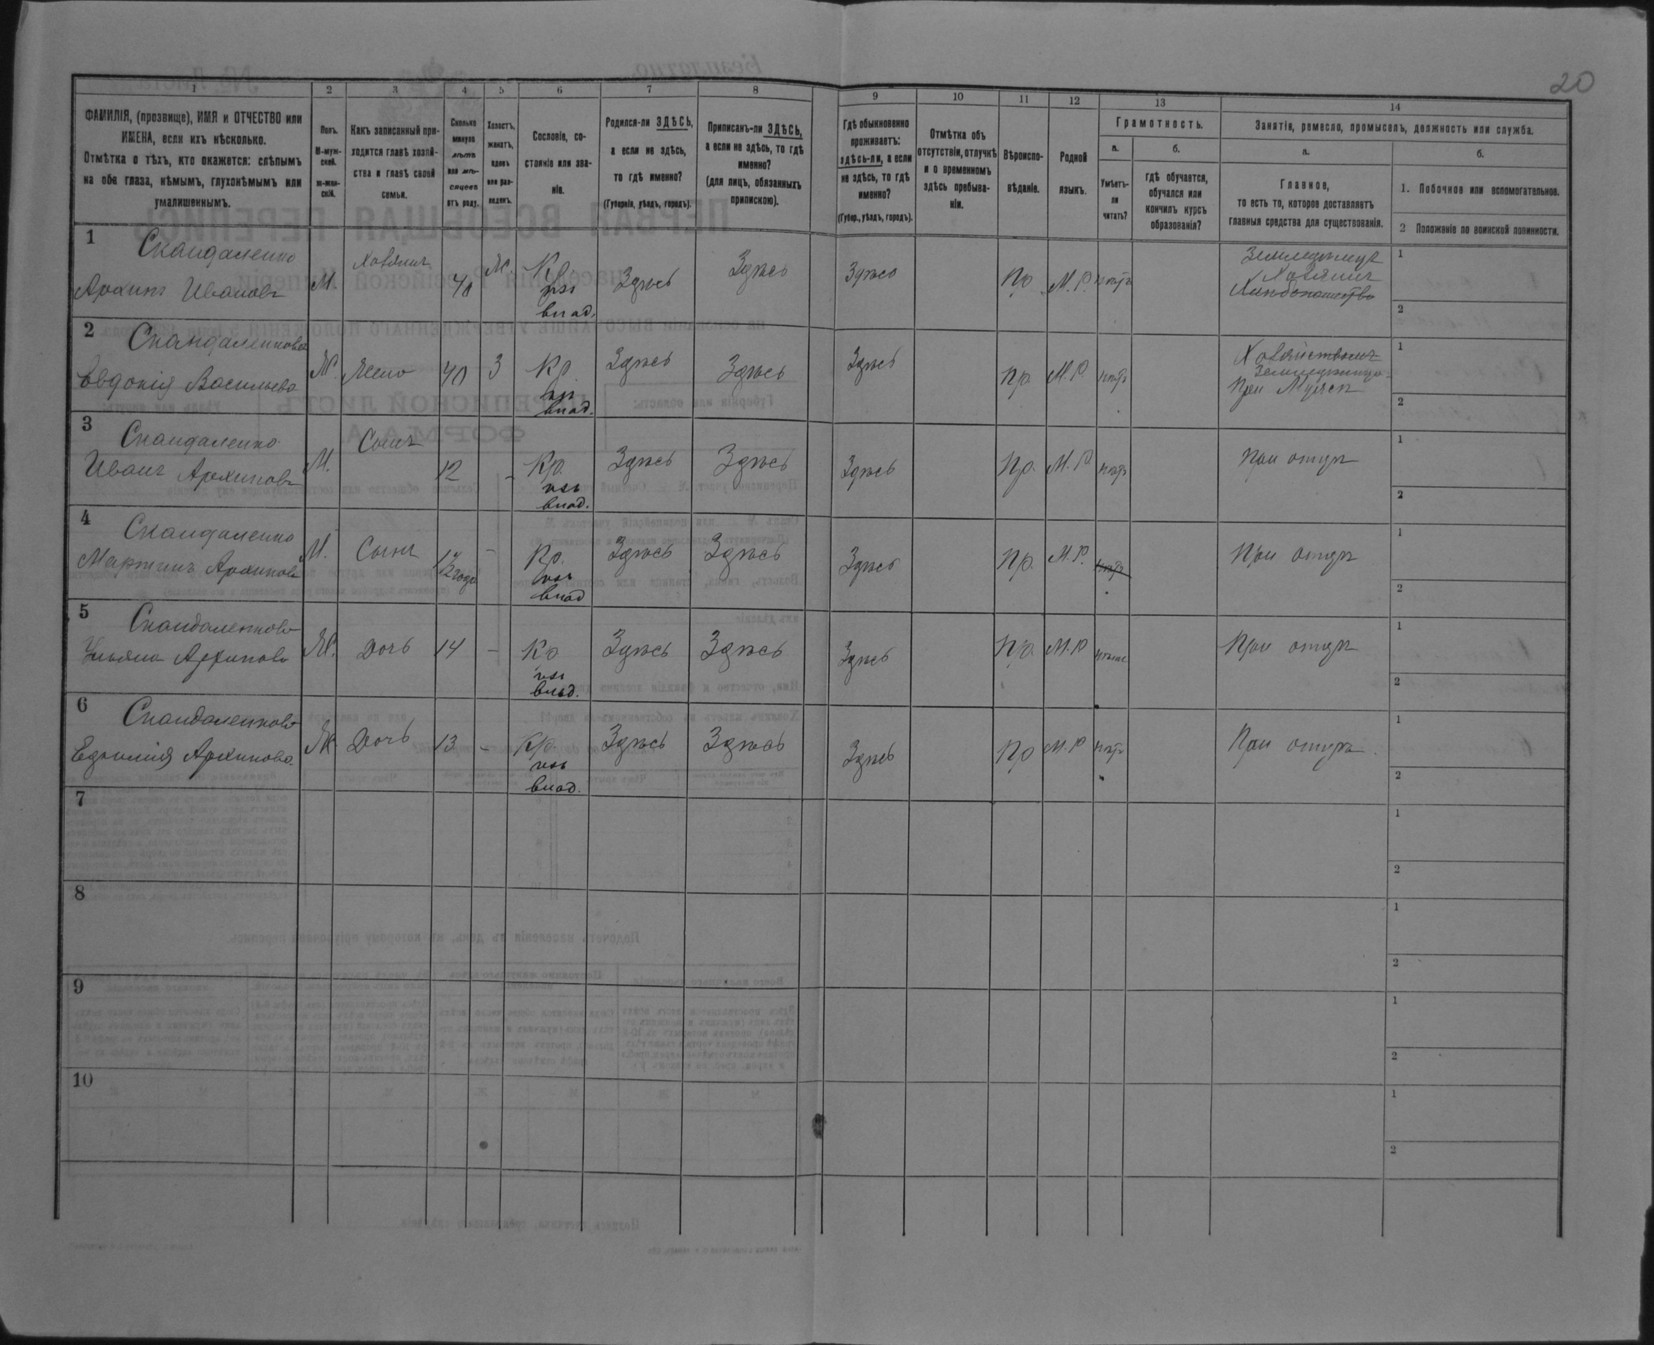 20
1
2
3
4
5
6
7
8
9
10
11
12
13
14
ФАМИЛІЯ, (прозвище), ИМЯ и ОТЧЕСТВО или
ИМЕНА, если ихъ нѣсколько.
Отмѣтка о тѣхъ, кто окажется: слѣпымъ
на оба глаза, нѣмымъ, глухонѣмымъ или
умалишеннымъ.
Полъ.
М-муж-
ской.
ж-жен-
скій.
Какъ записанный при-
ходится главѣ хозяй-
ства и главѣ своей
семьи.
Сколько
минуло
лѣтъ
или мѣ-
сяцевъ
отъ роду.
Холостъ,
женатъ,
вдовъ
или раз-
веденъ.
Сословіе, со-
стояніе или зва-
ніе.
Родился-ли ЗДѢСЬ,
а если не здѣсь,
то гдѣ именно?
(Губернія, уѣздъ, городъ).
Приписанъ-ли ЗДѢСЬ,
а если не здѣсь, то гдѣ
именно?
(для лицъ, обязанныхъ
припискою).
Гдѣ обыкновенно
проживаетъ:
здѣсь-ли, а если
не здѣсь, то гдѣ
именно?
(Губер., уѣздъ, городъ).
Отмѣтка объ
отсутствіи, отлучкѣ
и о временномъ
здѣсь пребыва-
ніи.
Вѣроиспо-
вѣданіе.
Родной
языкъ.
Грамотность.
а.
Умѣетъ-
ли
читать?
б.
гдѣ обучается,
обучался или
кончилъ курсъ
образованія?
Занятіе, ремесло, промыселъ, должность или служба.
а.
Главное,
то есть то, которое доставляетъ
главныя средства для существованія.
б.
1. Побочное или вспомогательное.
2 Положеніе по воинской повинности.
1
Скандаленко
Архипъ Ивановъ
М.
Хозяинъ
40
Кр.
изъ
влад.
Здѣсь
Здѣсь
Здѣсь
Пр
М.Р.
нѣтъ
Земледѣлецъ
Хозяинъ
Хлѣбопашество
1
2
2
Скандаленкова
Евдокія Васильева
Ж.
Жена
40
З
Кр.
изъ
влад.
Здѣсь
Здѣсь
Здѣсь
Пр.
М.Р.
нѣтъ
При Мужѣ
1
2
3
Скандаленко
Иванъ Архиповъ
М.
Сынъ
12
-
Кр.
изъ
влад.
Здѣсь
Здѣсь
Здѣсь
Пр.
М.Р.
нѣтъ
при отцѣ
1
2
4
Скандаленко
Мартинъ Архиповъ
М.
Сынъ
-
Кр.
изъ
влад
Здѣсь
Здѣсь
Здѣсь
Пр.
М.Р.
нѣтъ
При отцѣ
1
2
5
Скандаленкова
Ульяна Архипова
Ж.
Дочь
14
-
Кр
изъ
влад.
Здѣсь
Здѣсь
Здѣсь
Пр.
М.Р
При отцѣ
1
2
6
Скандаленкова
Архипова
Ж
Дочь
13
-
Кр.
изъ
влад.
Здѣсь
Здѣсь
Здѣсь
Пр
М.Р
нѣтъ
При отцѣ
1
2
7
1
2
8
1
2
9
1
2
10
1
2